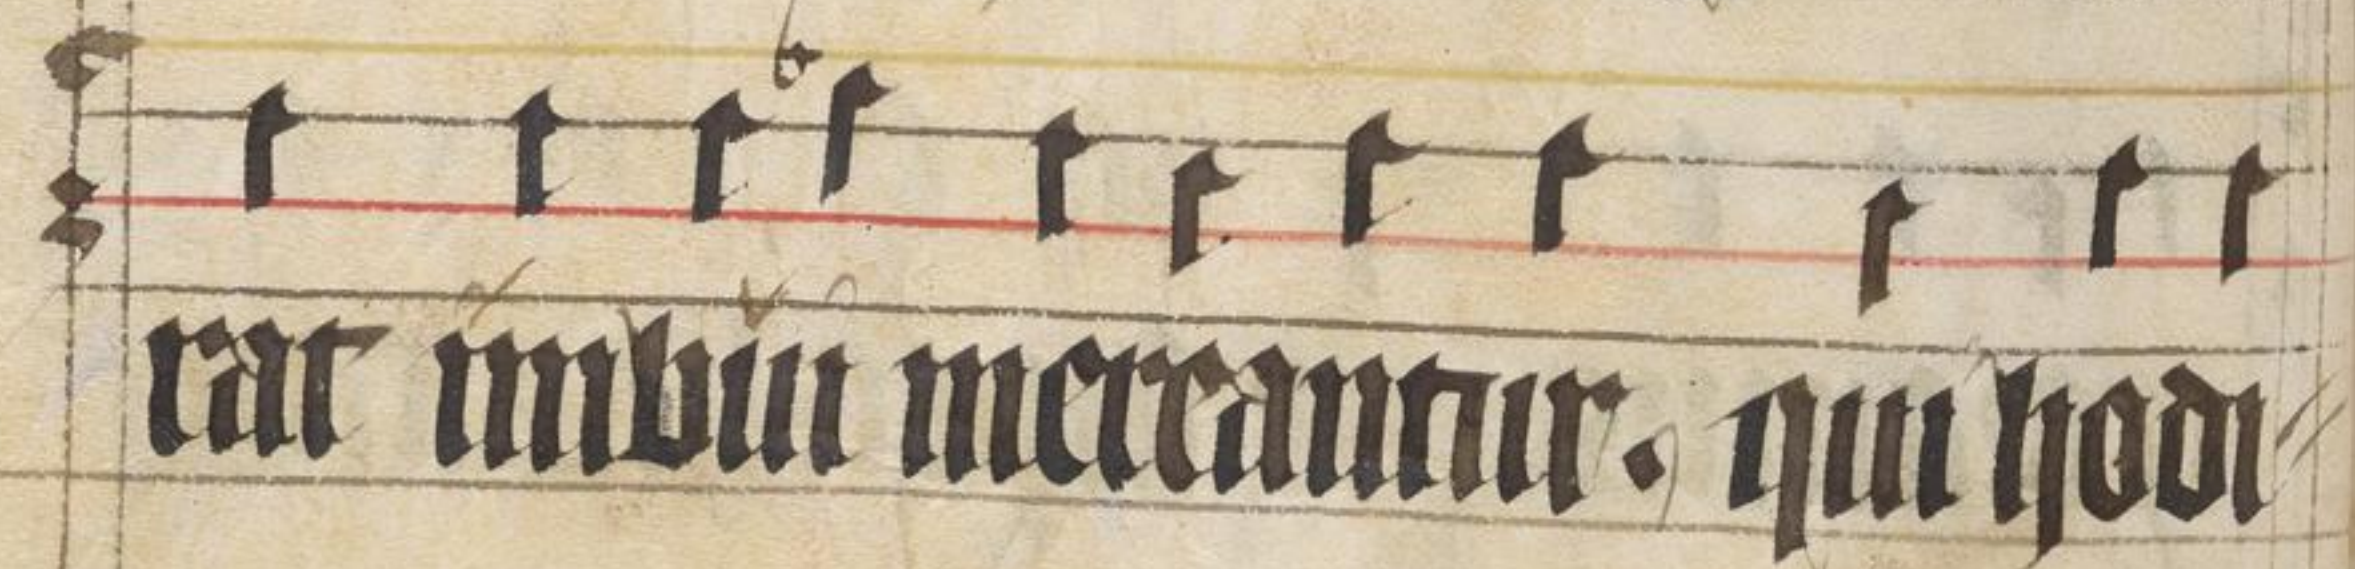 rat imbui mereantur. qui hodi-